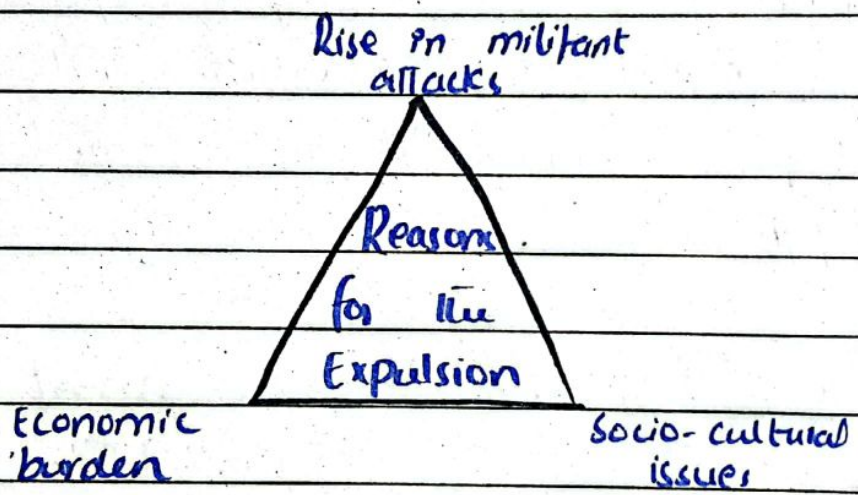 Rise in militant
attacks
Reasons
for the
Expulsion
Economic
burden
Socio-cultural
issues